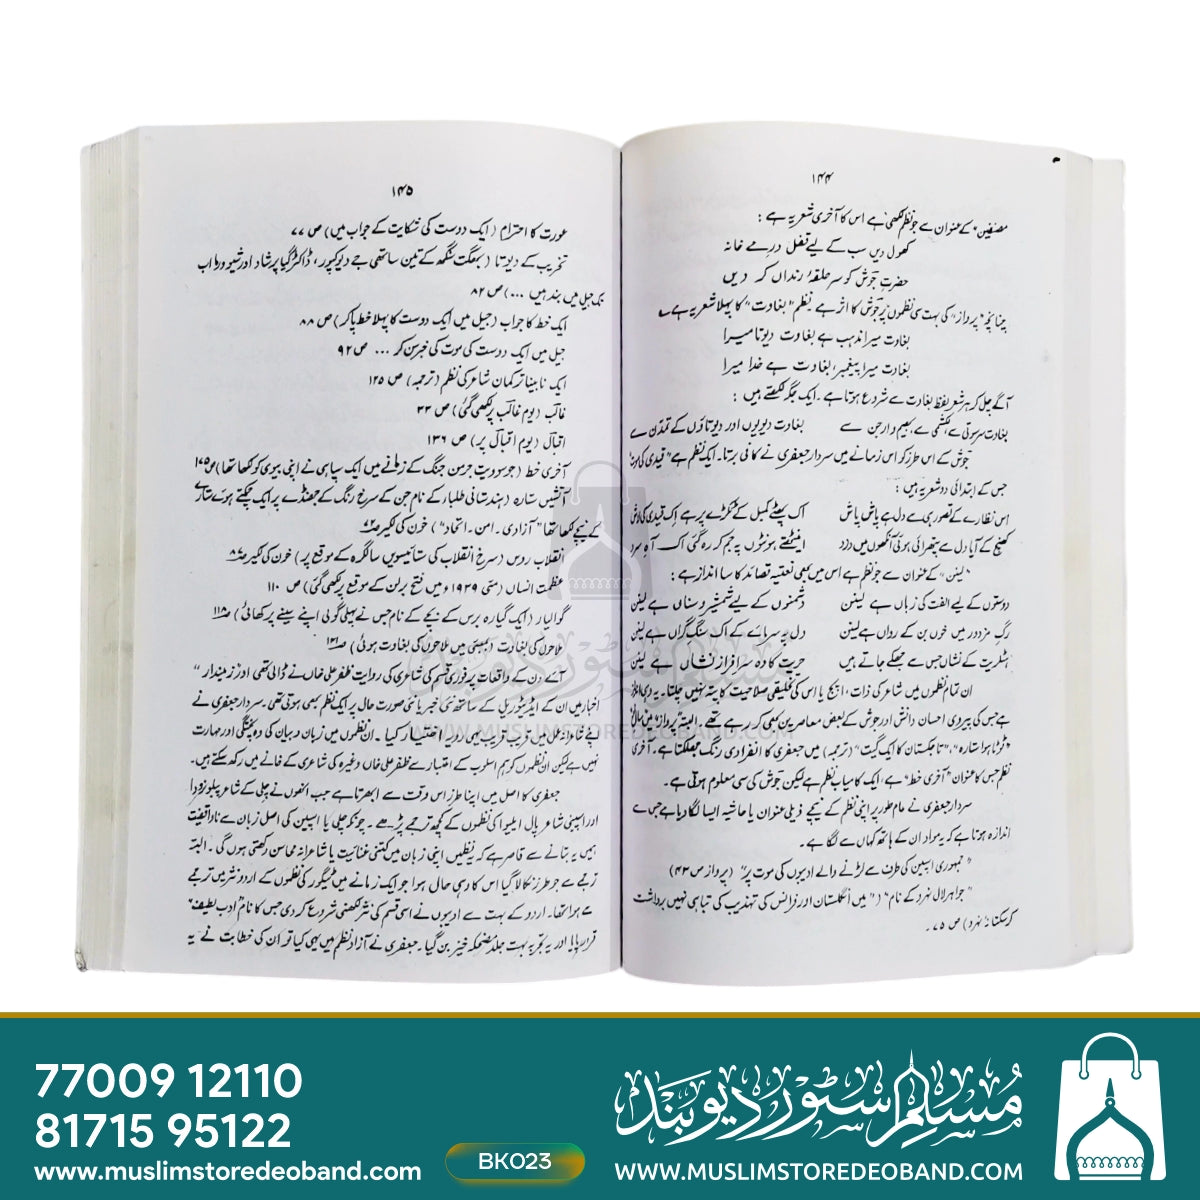 ۱۴۴
مصنفین" کے عنوان سے جو نظم لکھی ہے اس کا آخری شعر یہ ہے :
کھول دیں سب کے لیے قفل درِ مے خانہ
حضرتِ جوش کو سرِ حلقۂ رنداں کر دیں
چنانچہ "پرواز" کی بہت سی نظموں پر جوش کا اثر ہے نظم "بغاوت" کا پہلا شعر یہ ہے
بغاوت میرا مذہب ہے بغاوت دیوتا میرا
بغاوت میرا پیغمبر، بغاوت ہے خدا میرا
آگے چل کر ہر شعر لفظ بغاوت سے شروع ہوتا ہے۔ ایک جگہ لکھتے ہیں :
بغاوت سرسوتی سے لکشمی سے بھیم و ارجن سے بغاوت دیویوں اور دیوتاؤں کے تمدّن سے
جوش کے اس طرز کو اس زمانے میں سردار جعفری نے کافی برتا۔ ایک نظم ہے "قیدی کی
جس کے ابتدائی دو شعر یہ ہیں :
اس نظارے کے تصور ہی سے دل ہے پاش پاش اک پھٹے کمبل کے ٹکڑے پر ہے اِک قیدی کی لاش
کھنچ کے آیا دل سے پتھرائی ہوئی آنکھوں میں درد اینٹھتے ہونٹوں پہ جم کر رہ گئی اک آہِ سرد
"لینن" کے عنوان سے جو نظم ہے اس میں بھی نعتیہ قصائد کا سا انداز ہے :
دوستوں کے لیے الفت کی زباں ہے لینن دشمنوں کے لیے شمشیر و سناں ہے لینن
رگِ مزدور میں خوں بن کے رواں ہے لینن دل پہ سرمائے کے اک سنگِ گراں ہے لینن
ہٹلریت کے نشاں جس سے جھکے جاتے ہیں حریت کا وہ سرافراز نشاں ہے لینن
ان تمام نظموں میں شاعر کی ذات، اپج یا اس کی تخلیقی صلاحیت کا پتہ نہیں چلتا۔ یہ وہی انداز
ہے جس کی پیروی احسان دانش اور جوش کے بعض معاصرین بھی کر رہے تھے۔ البتہ "پرواز" میں شامل
"ٹوٹا ہوا ستارہ"، "تاجکستان کا ایک گیت" (ترجمہ) میں جعفری کا انفرادی رنگ جھلکتا ہے۔ آخری
نظم جس کا عنوان "آخری خط" ہے، ایک کامیاب نظم ہے لیکن جوش کی سی معلوم ہوتی ہے۔
سردار جعفری نے عام طور پر اپنی نظم کے نیچے ذیلی عنوان یا حاشیہ ایسا لگا دیا ہے جس سے
اندازہ ہوتا ہے کہ یہ مواد ان کے ہاتھ کہاں سے لگا ہے۔
"جمہوری اسپین کی طرف سے لڑنے والے ادیبوں کی موت پر" (پرواز ص ۴۳)
"جواہر لال نہرو کے نام" ("میں انگلستان اور فرانس کی تہذیب کی تباہی نہیں برداشت
کر سکتا": نہرو) ص ۷۵۔
۱۴۵
عورت کا احترام (ایک دوست کی شکایت کے جواب میں) ص ۷۷
تخریب کے دیوتا (بھگت سنگھ کے تین ساتھی جے دیو کپور، ڈاکٹر گیا پرشاد اور شیو ورما اب
تک جیل میں بند ہیں ...) ص ۸۲
ایک خط کا جواب (جیل میں ایک دوست کا پہلا خط پا کر) ص ۸۸
جیل میں ایک دوست کی موت کی خبر سن کر ... ص ۹۲
ایک نابینا ترکمان شاعر کی نظم (ترجمہ) ص ۱۲۵
غالب (یومِ غالب پر لکھی گئی) ص ۳۳
اقبال (یومِ اقبال پر) ص ۱۳۶
آخری خط (جو سوویت جرمن جنگ کے زمانے میں ایک سپاہی نے اپنی بیوی کو لکھا تھا) ص ۱۷۵
آتشیں ستارہ (ہندستانی طلباء کے نام جن کے سرخ رنگ کے جھنڈے پر ایک چمکتے ہوئے ستارے
کے نیچے لکھا تھا "آزادی۔ امن۔ اتحاد") خون کی لکیر ص
انقلابِ روس (سرخ انقلاب کی ستائیسویں سالگرہ کے موقع پر) خون کی لکیر ص
عظمتِ انساں (مئی ۱۹۳۹ء میں فتحِ برلن کے موقع پر لکھی گئی) ص ۱۱۰
گوالیار (ایک گیارہ برس کے بچے کے نام جس نے پہلی گولی اپنے سینے پر کھائی) ص ۱۱۸
ملاحوں کی بغاوت (بمبئی میں ملاحوں کی بغاوت ہوئی) ص ۱۲۱
آئے دن کے واقعات پر فوری قسم کی شاعری کی روایت ظفر علی خاں نے ڈالی تھی اور "زمیندار"
اخبار میں ان کے ایڈیٹوریل کے ساتھ نئی خبر یا نئی صورت حال پر ایک نظم بھی ہوتی تھی۔ سردار جعفری نے
اپنے شاعرانہ عمل میں قریب قریب یہی رویہ اختیار کیا۔ ان نظموں میں زبان و بیان کی وہ پختگی اور مہارت
نہیں ہے لیکن ان نظموں کو ہم اسلوب کے اعتبار سے ظفر علی خاں وغیرہ کی شاعری کے خانے میں رکھ سکتے ہیں۔
جعفری کا اصل میں اپنا طرز اس وقت سے ابھرتا ہے جب انھوں نے چلی کے شاعر پابلو نرودا
اور اسپینی شاعر پال ایلیوا کی نظموں کے کچھ ترجمے پڑھے۔ چونکہ چلی یا اسپین کی اصل زبان سے ناواقفیت
ہمیں یہ بتانے سے قاصر ہے کہ یہ نظمیں اپنی زبان میں کتنی غنائیت یا شاعرانہ محاسن رکھتی ہوں گی۔ البتہ
ترجمے سے جو طرز نکالا گیا اس کا وہی حال ہوا جو ایک زمانے میں ٹیگور کی نظموں کے اردو نثر میں ترجمے
سے ہوا تھا۔ اردو کے بہت سے ادیبوں نے اسی قسم کی نثر لکھنی شروع کر دی جس کا نام "ادبِ لطیف"
قرار پایا اور یہ تجربہ بہت جلد مضحکہ خیز بن گیا۔ جعفری نے آزاد نظم میں یہی کیا تو ان کی خطابت نے یہ
مسلم سٹور دیوبند
WWW.MUSLIMSTOREDEOBAND.COM
77009 12110
81715 95122
www.muslimstoredeoband.com
BK023
مسلم سٹور دیوبند
WWW.MUSLIMSTOREDEOBAND.COM